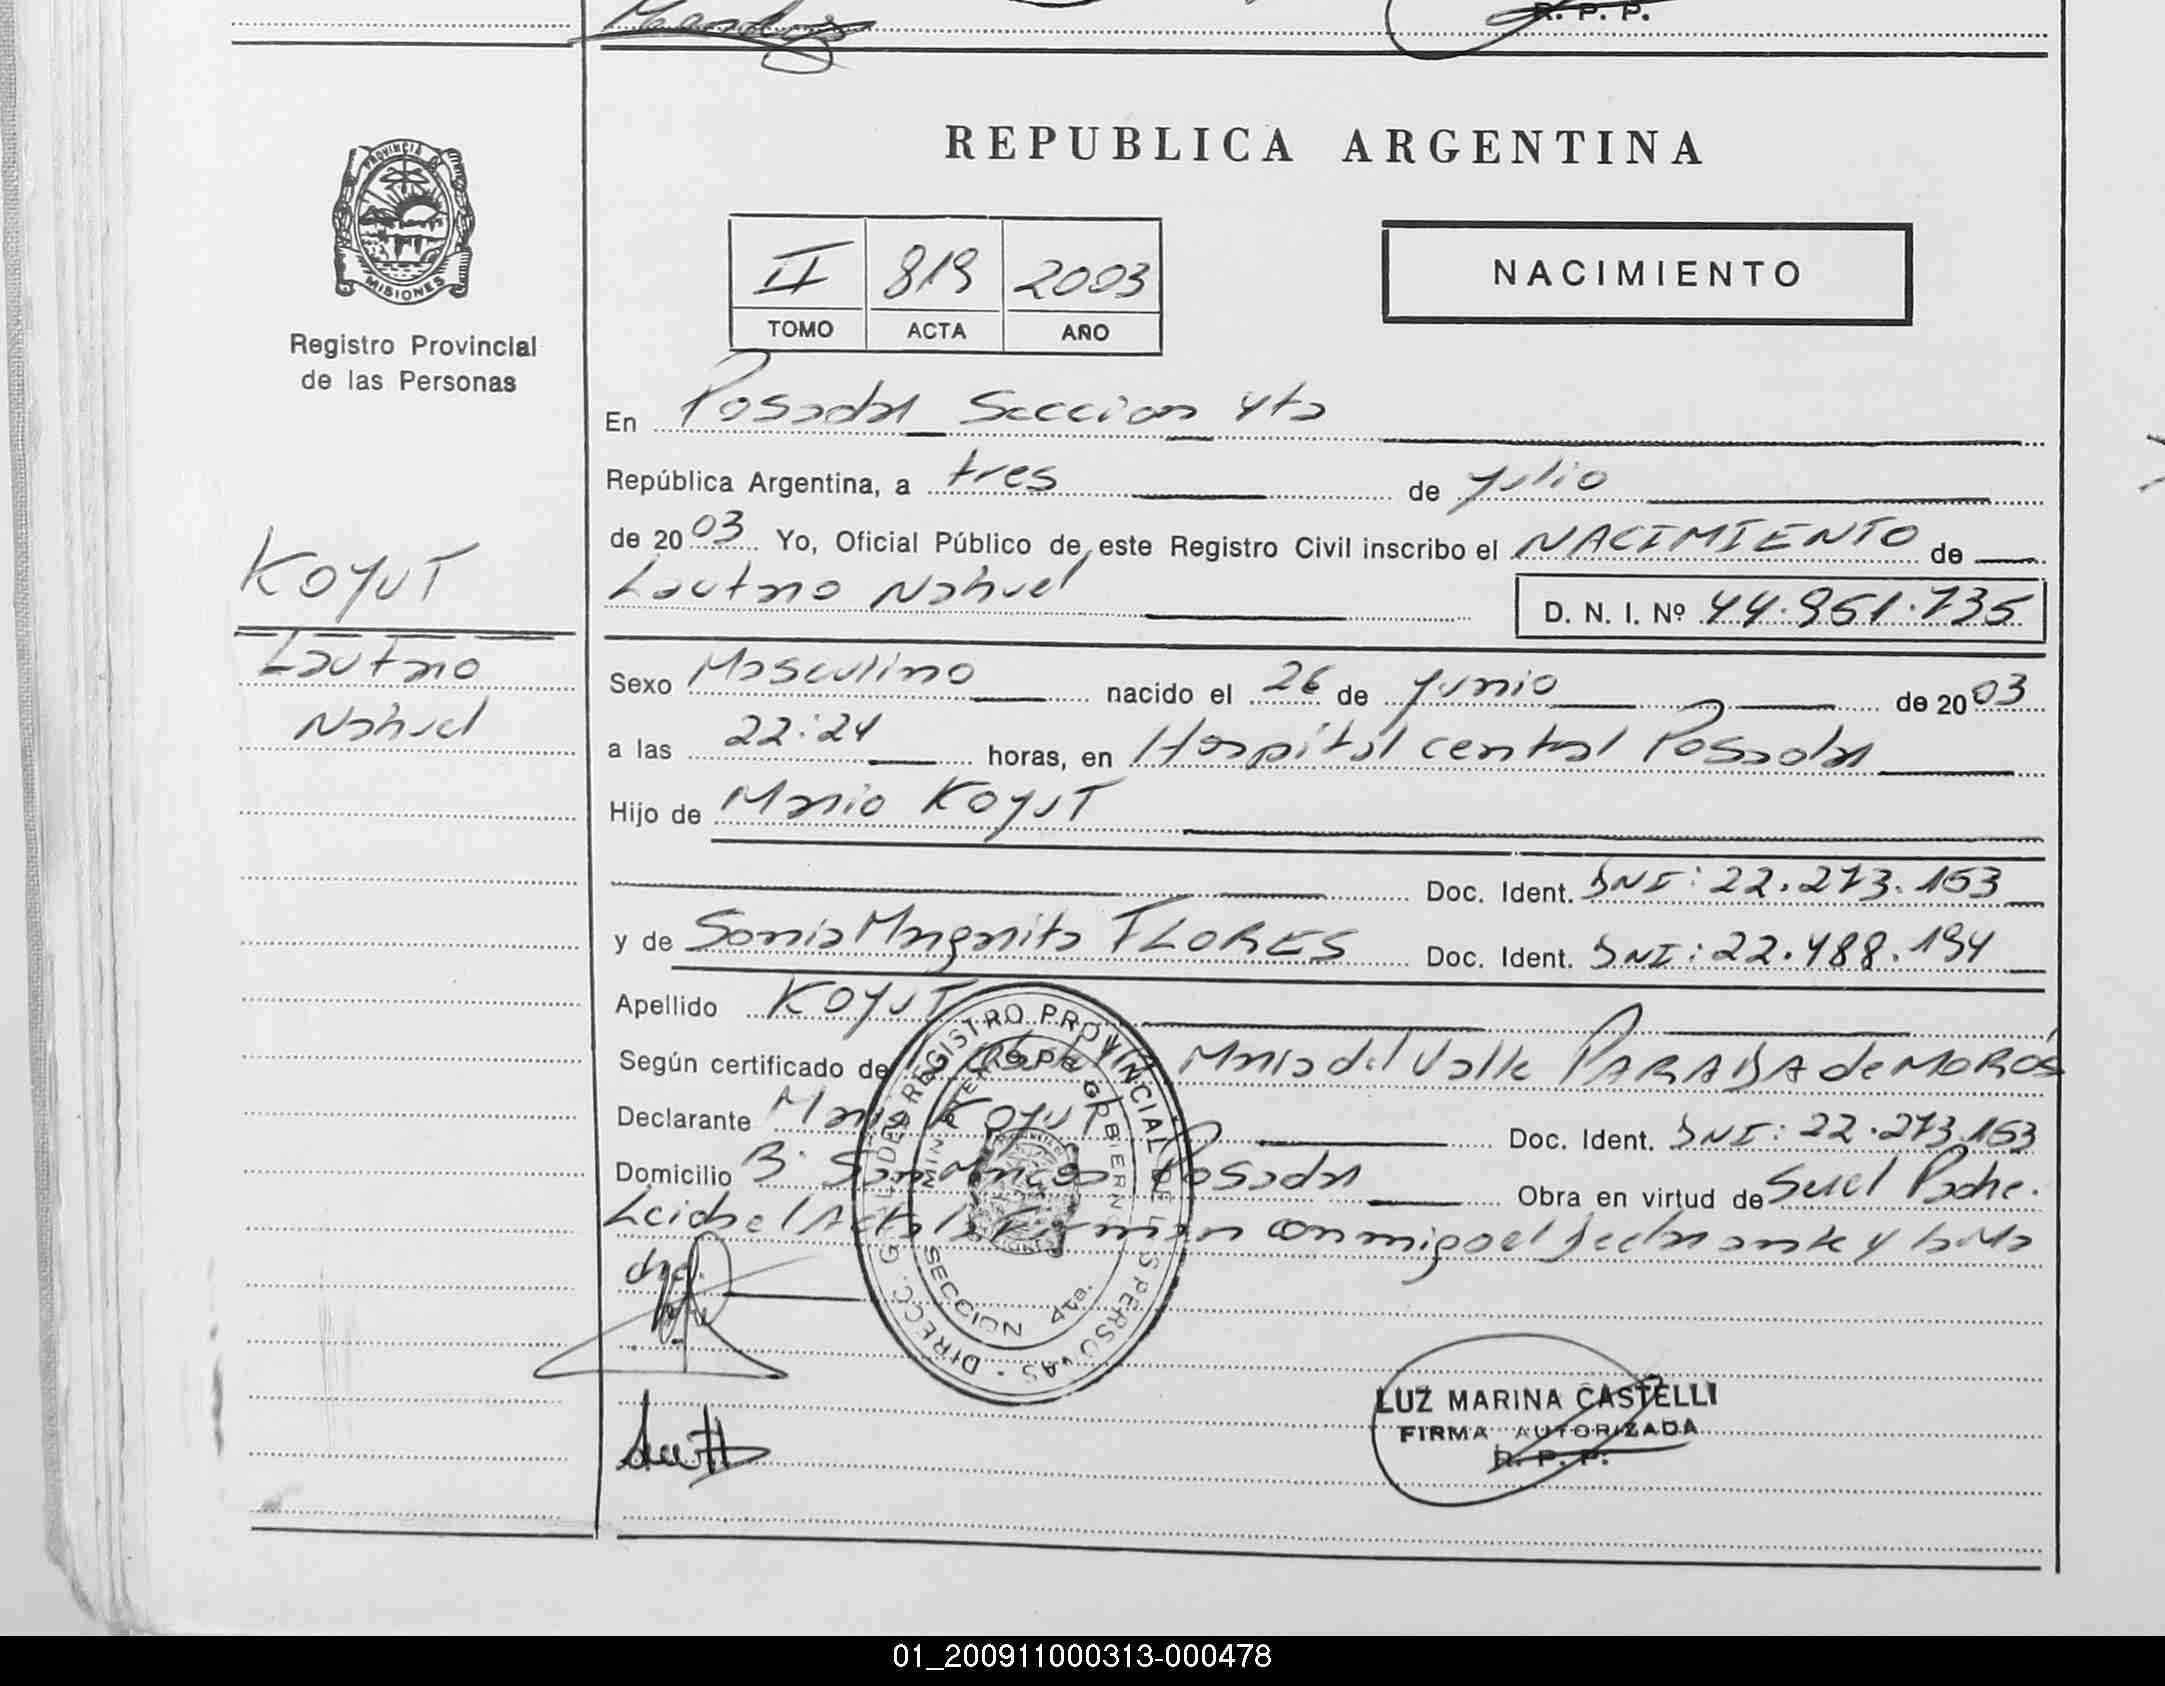 R. P. P.
REPUBLICA ARGENTINA
PROVINCIA DE
MISIONES
Registro Provincial
de las Personas
II 819 2003
TOMO ACTA AÑO
NACIMIENTO
En Posadas Seccion 4ta
República Argentina, a tres de Julio
de 2003 Yo, Oficial Público de este Registro Civil inscribo el NACIMIENTO de
KOYUT
Lautaro Nahuel
D. N. I. Nº 44.951.735
Lautaro
Nahuel
Sexo Masculino nacido el 26 de Junio de 2003
a las 22:24 horas, en Hospital central Posadas
Hijo de Mario KOYUT
Doc. Ident. DNI: 22.273.153
y de Sonia Margarita FLORES Doc. Ident. DNI: 22.488.194
Apellido KOYUT
Según certificado de Maria del Valle PARABA de MOROS
Declarante Mario KOYUT Doc. Ident. DNI: 22.273.153
Domicilio B. San Marcos Posadas Obra en virtud de Ser el Padre.
Leida el Acta la Firman conmigo el declarante y la Ma
dre.
DIRECC. GRAL. DEL REGISTRO PROVINCIAL DE LAS PERSONAS
SECCION 4ta.
LUZ MARINA CASTELLI
FIRMA AUTORIZADA
R. P. P.
01_200911000313-000478